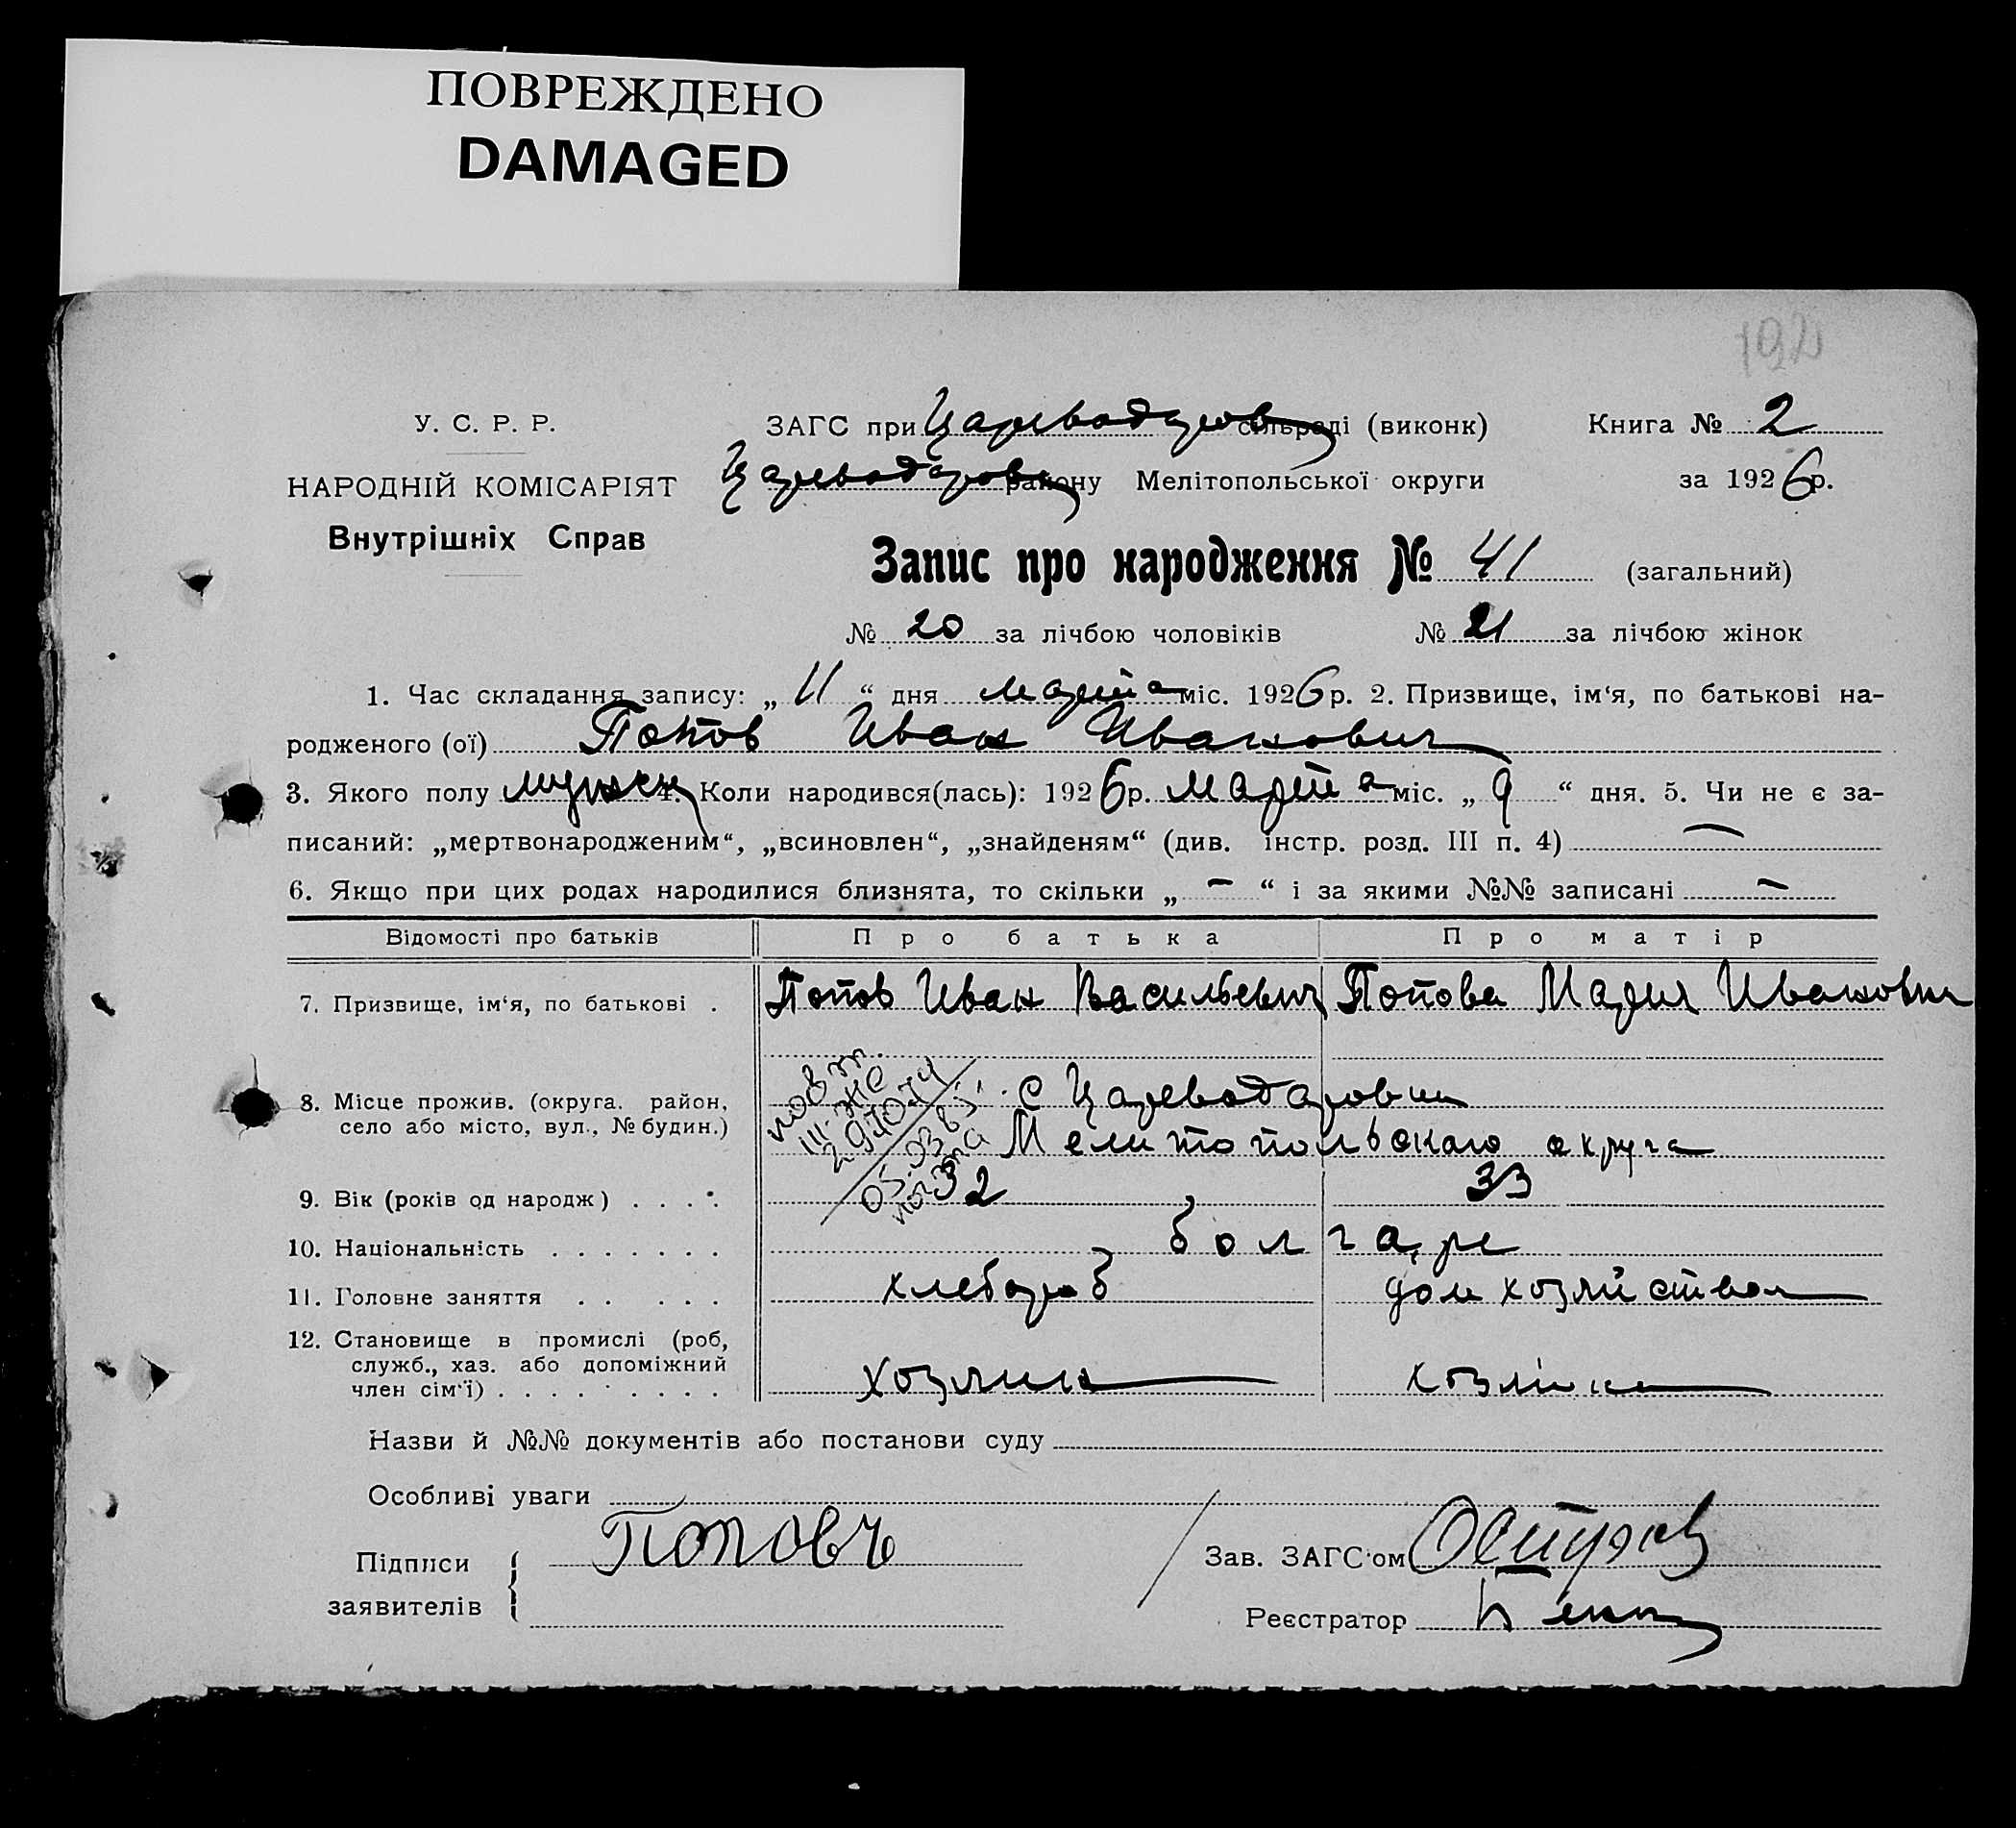 ПОВРЕЖДЕНО
DAMAGED
192
У. С. Р. Р.
НАРОДНІЙ КОМІСАРІЯТ
Внутрішніх Справ
ЗАГС при Цареводаров сільраді (виконк)
Цареводаров району Мелітопольської округи
Книга № 2
за 1926 р.
Запис про народження № 41 (загальний)
№ 20 за лічбою чоловіків № 21 за лічбою жінок
1. Час складання запису: „ 11 “ дня марта міс. 1926 р. 2. Призвище, ім‘я, по батькові на-
родженого (ої) Попов Иван Иванович
3. Якого полу мужск 4. Коли народився(лась): 1926 р. марта міс. „ 9 “ дня. 5. Чи не є за-
писаний: „мертвонародженим“, „всиновлен“, „знайденям“ (див. інстр. розд. III п. 4) —
6. Якщо при цих родах народилися близнята, то скільки „ — “ і за якими №№ записані —
Відомості про батьків Про батька Про матір
7. Призвище, ім‘я, по батькові . Попов Иван Васильевич Попова Мария Ивановн
8. Місце прожив. (округа, район,
село або місто, вул., № будин.)
с Цареводаровки
Мелитопольскаго округа
повт.
III-ЖС
297074
05.03.85
9. Вік (років од народж) . . . . 32 33
10. Національність . . . . . . . болгаре
11. Головне заняття . . . . . хлебороб дом хозяйством
12. Становище в промислі (роб,
служб., хаз. або допоміжний
член сім‘ї) . . . . . . . . . хозяин хозяйка
Назви й №№ документів або постанови суду
Особливі уваги
Підписи
заявителів
Поповъ
Зав. ЗАГС‘ом
Реєстратор